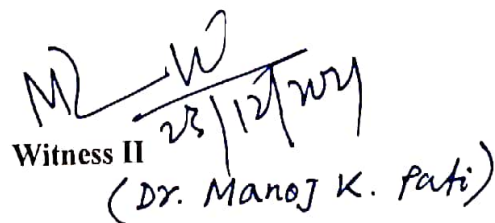 23/12/2021
Witness II
(Dr. Manoj K. Pati)